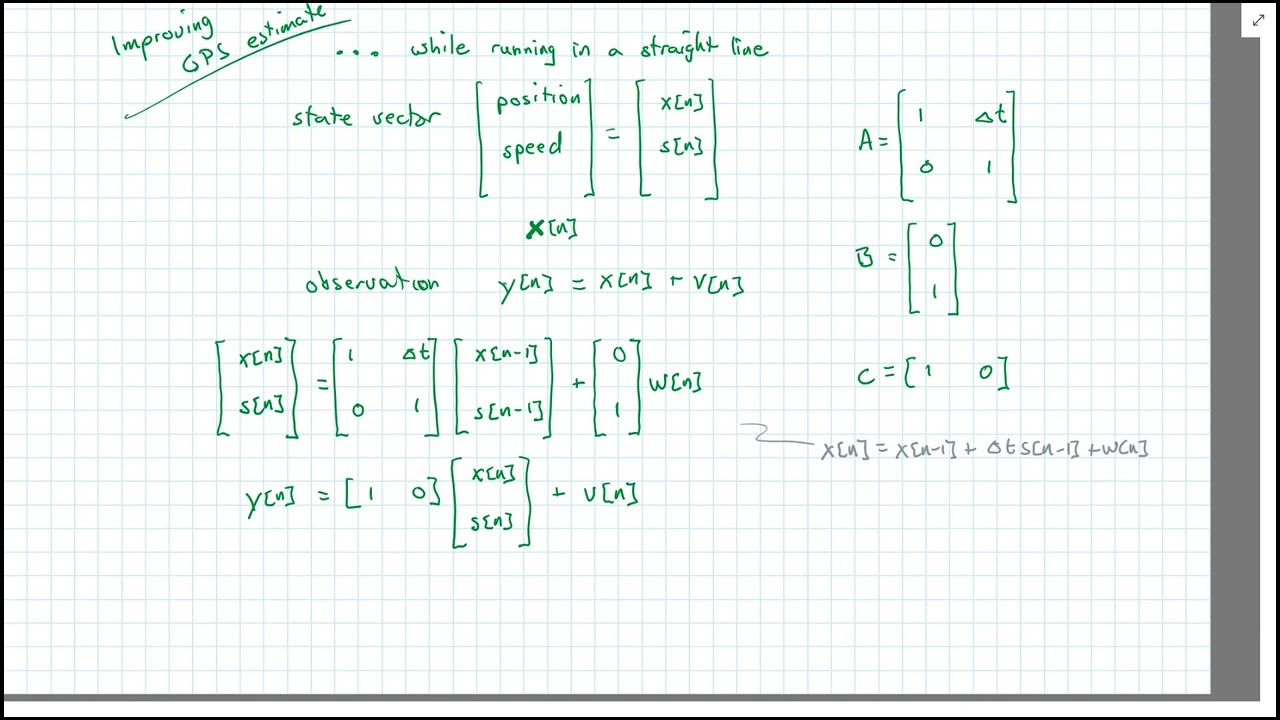 Improving
GPS estimate
... while running in a straight line
state vector [position speed] = [x[n] s[n]]
x[n]
A = [1 Δt 0 1]
B = [0 1]
observation y[n] = x[n] + v[n]
[x[n] s[n]] = [1 Δt 0 1] [x[n-1] s[n-1]] + [0 1] w[n]
C = [1 0]
x[n] = x[n-1] + Δt s[n-1] + w[n]
y[n] = [1 0] [x[n] s[n]] + v[n]